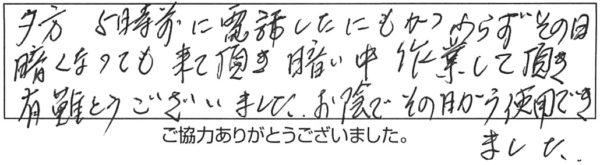 夕方 5時前に電話したにもかかわらずその日
暗くなっても来て頂き暗い中 作業して頂き
有難とうございました。お陰でその日から使用でき
ました。
ご協力ありがとうございました。